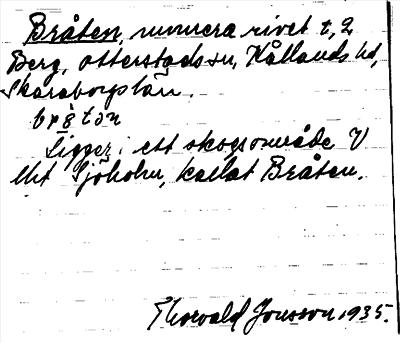 Bråten, numera rivet t, 2
Berg, Otterstads sn, Kållands hd,
Skaraborgs län.
brå̀tən
Ligger i ett skogsområde V
lht Sjöholm, kallat Bråten.
Thorvald Jonsson 1935.